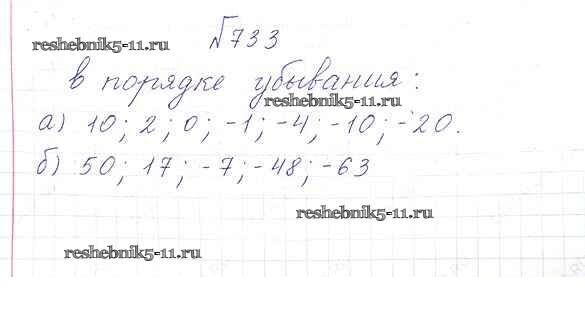 №733
reshebnik5-11.ru
в порядке убывания:
reshebnik5-11.ru
а) 10; 2; 0; -1; -4; -10; -20.
б) 50; 17; -7; -48; -63
reshebnik5-11.ru
reshebnik5-11.ru